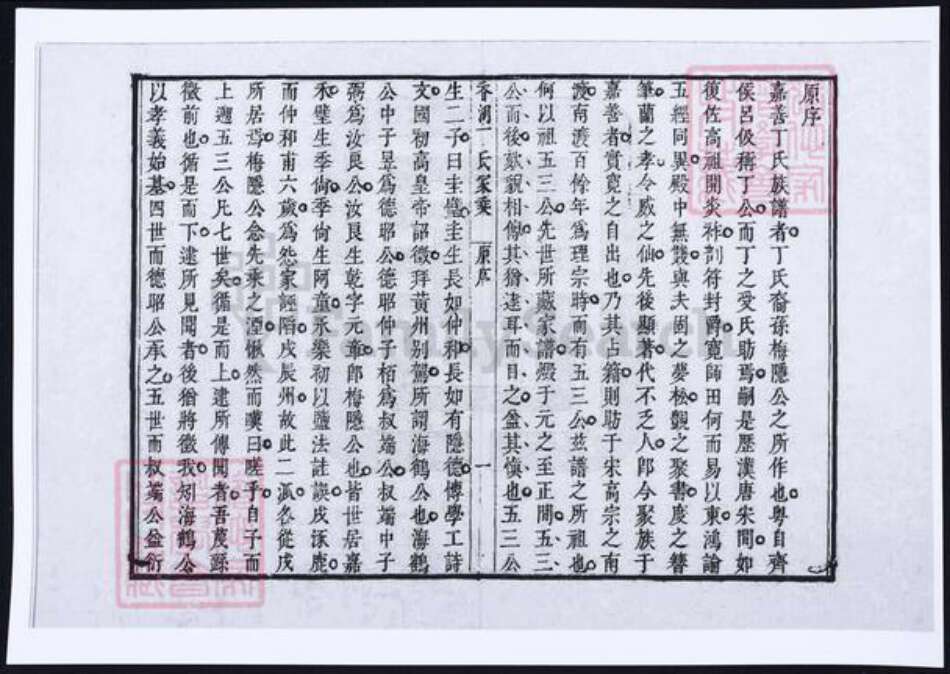 原序
嘉善丁氏族譜者丁氏裔孫梅隱公之所作也粤自齊
侯呂伋稱丁公而丁之受氏昉焉嗣是歷漢唐宋間如
復佐高祖開炎祚剖符封爵寬師田何而易以東鴻論
五經同異殿中無雙與夫固之夢松覬之聚書度之簪
筆蘭之孝令威之仙先後顯著代不乏人卽今聚族于
嘉善者實寬之自出也乃其占籍則昉于宋高宗之南
渡南渡百餘年為理宗時而有五三公茲譜之所祖也
何以祖五三公先世所藏家譜燬于元之至正間五三
公而後欵貌相傳其猶逮耳而目之益其愼也五三公
香湖丁氏家乘 原序 一
生二子曰圭曰圭生長如仲和長如有隱德博學工詩
文國初高皇帝詔徵拜黃州别駕所謂海鶴公也海鶴
公中子昱為德昭公德昭仲子栢為叔端公叔端中子
弼為汝艮公汝艮生乾字元章卽梅隱公也皆世居嘉
禾璧生季尙季尙生阿童永樂初以鹽法詿誤戍涿鹿
而仲和甫六歲為怨家誣陷戍辰州故此二派各從戍
所居焉梅隱公念先乘之湮愀然而嘆曰嗟乎自子而
上遡五三公凡七世矣循是而上逮所傳聞者吾蔑繇
徵前也循是而下逮所見聞者後猶將徵我矧海鶴公
以孝義始基四世而德昭公承之五世而叔端公益衍
FamilySearch